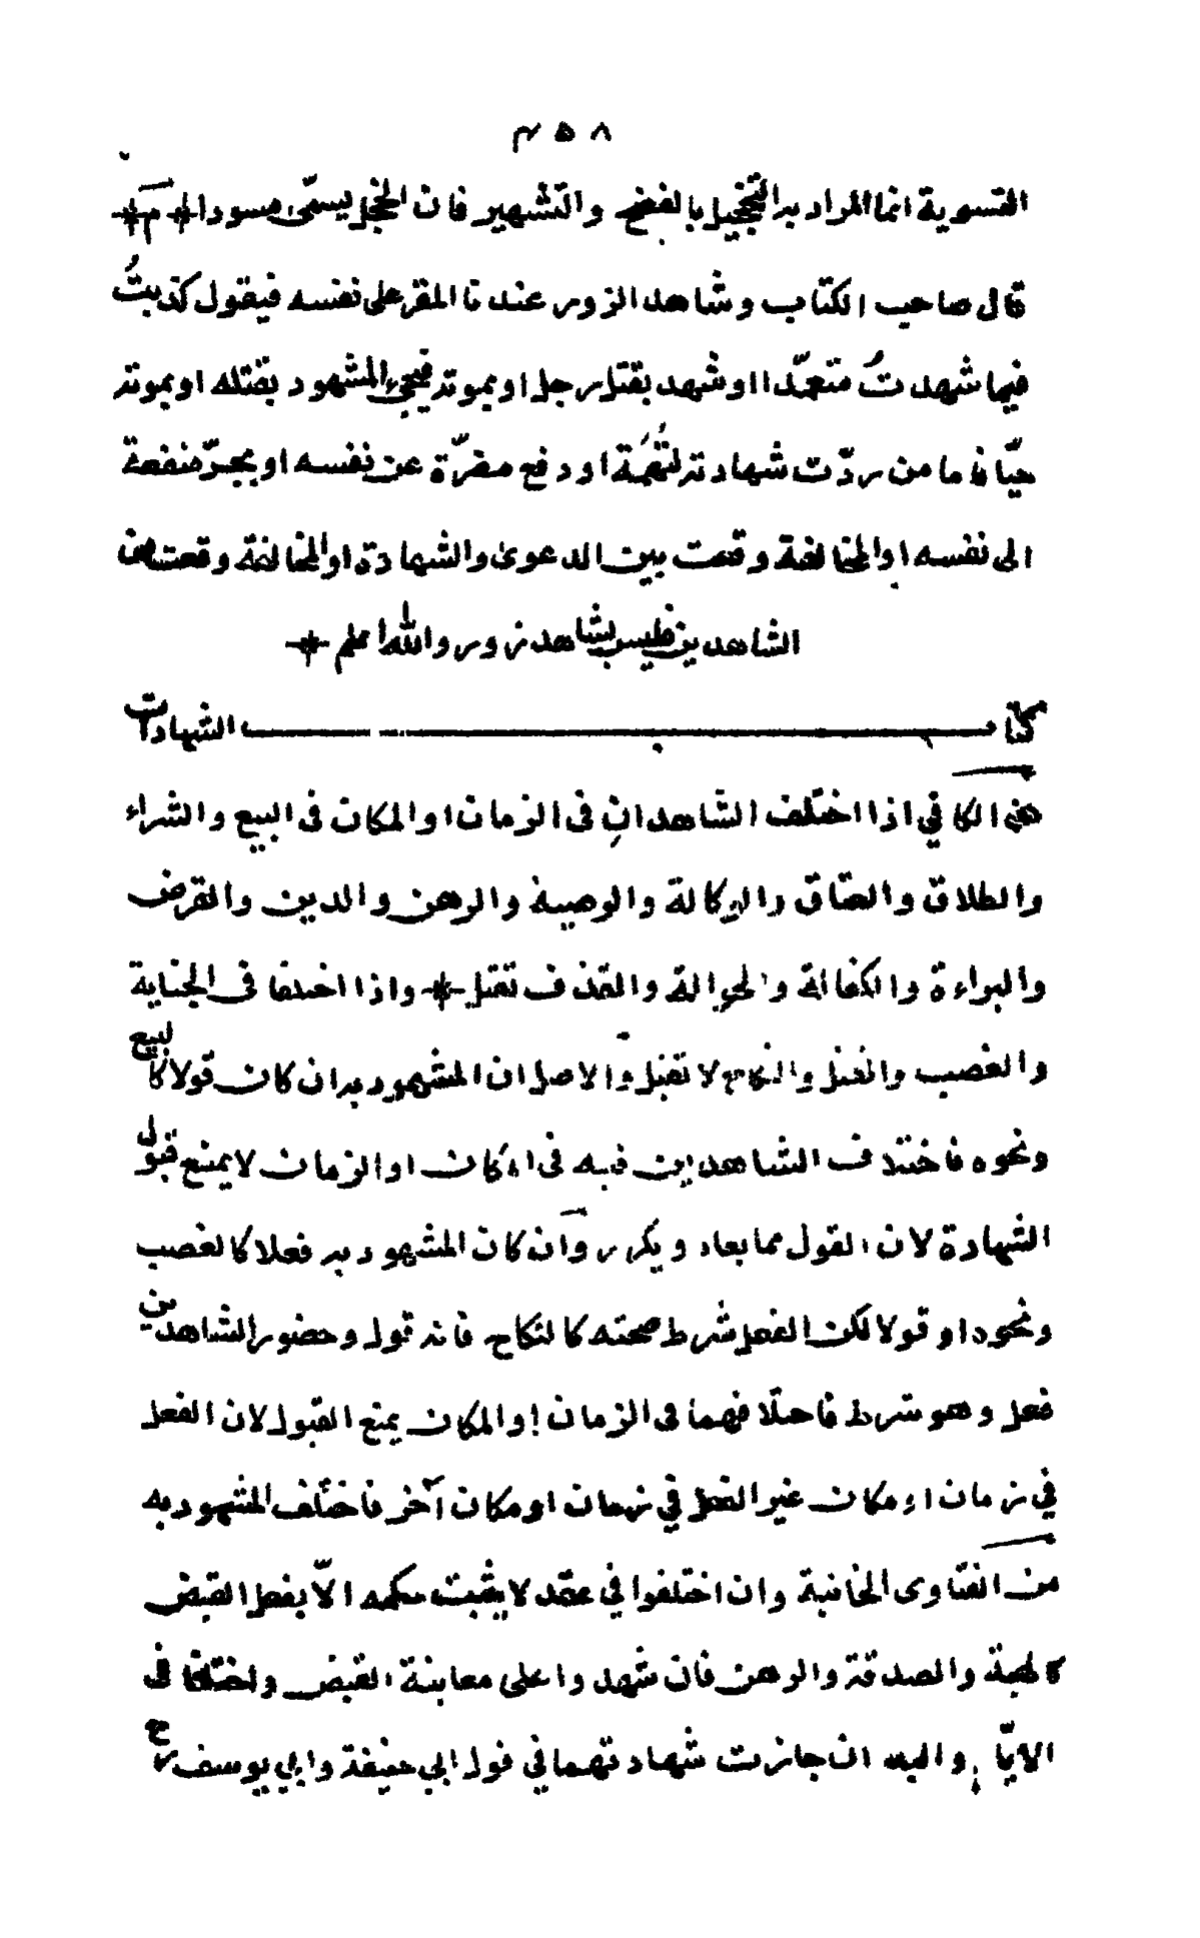 ۴۵۸
التسوية انما المراد به التخجيل بالفضح والتشهير فان الخجل يسمّى مسودا م
قال صاحب الكتاب وشاهد الزور عندنا المقر على نفسه فيقول كذبتُ
فيما شهدتُ متعمّدا او شهد بقتل رجل او بموته فيجئ المشهود بقتله او بموته
حيّا فاما من ردّت شهادته لتُهَمة او دفع مضرّة عن نفسه او بجرّ منفعة
الى نفسه او المخالفة وقعت بين الدعوى والشهادة او المخالفة وقعت بين
الشاهدين فليس بشاهد زور والله اعلم
كتاب الشهادات
من الكافي اذا اختلف الشاهدان فى الزمان او المكان فى البيع والشراء
والطلاق والعتاق والوكالة والوصية والرهن والدين والقرض
والبراءة والكفالة والحوالة والقذف تقبل واذا اختلفا فى الجناية
والغصب والقتل والنكاح لا تقبل والاصل ان المشهود به ان كان قولا كالبيع
ونحوه فاختلاف الشاهدين فيه فى المكان او الزمان لا يمنع قبول
الشهادة لان القول مما يعاد ويكرر وان كان المشهود به فعلا كالغصب
ونحوه او قولا لكن الفعل شرط صحته كالنكاح فانه قول وحضور الشاهدين
فعل وهو شرط فاختلافهما فى الزمان او المكان يمنع القبول لان الفعل
في زمان او مكان غير الفعل في زمان او مكان آخر فاختلف المشهود به
من الفتاوى الخانية وان اختلفوا في عقد لا يثبت حكمه الّا بفعل القبض
كالهبة والصدقة والرهن فان شهدوا على معاينة القبض واختلفا فى
الايّام والبلدان جازت شهادتهما في قول ابي حنيفة وابي يوسف رح